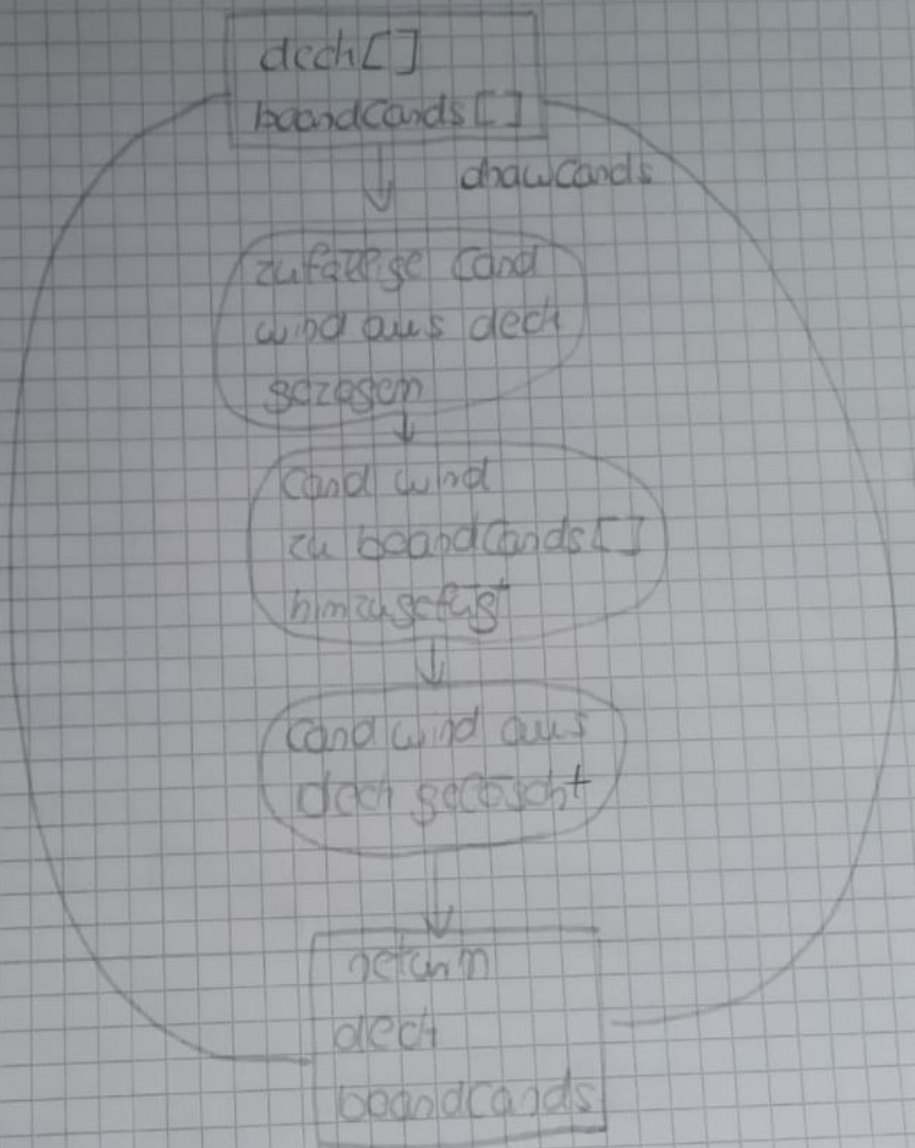 deck[]
boardCards[]
drawCards
zufällige Card
wird aus deck
gezogen
Card wird
zu boardCards[]
hinzugefügt
Card wird aus
deck gelöscht
return
deck
boardCards